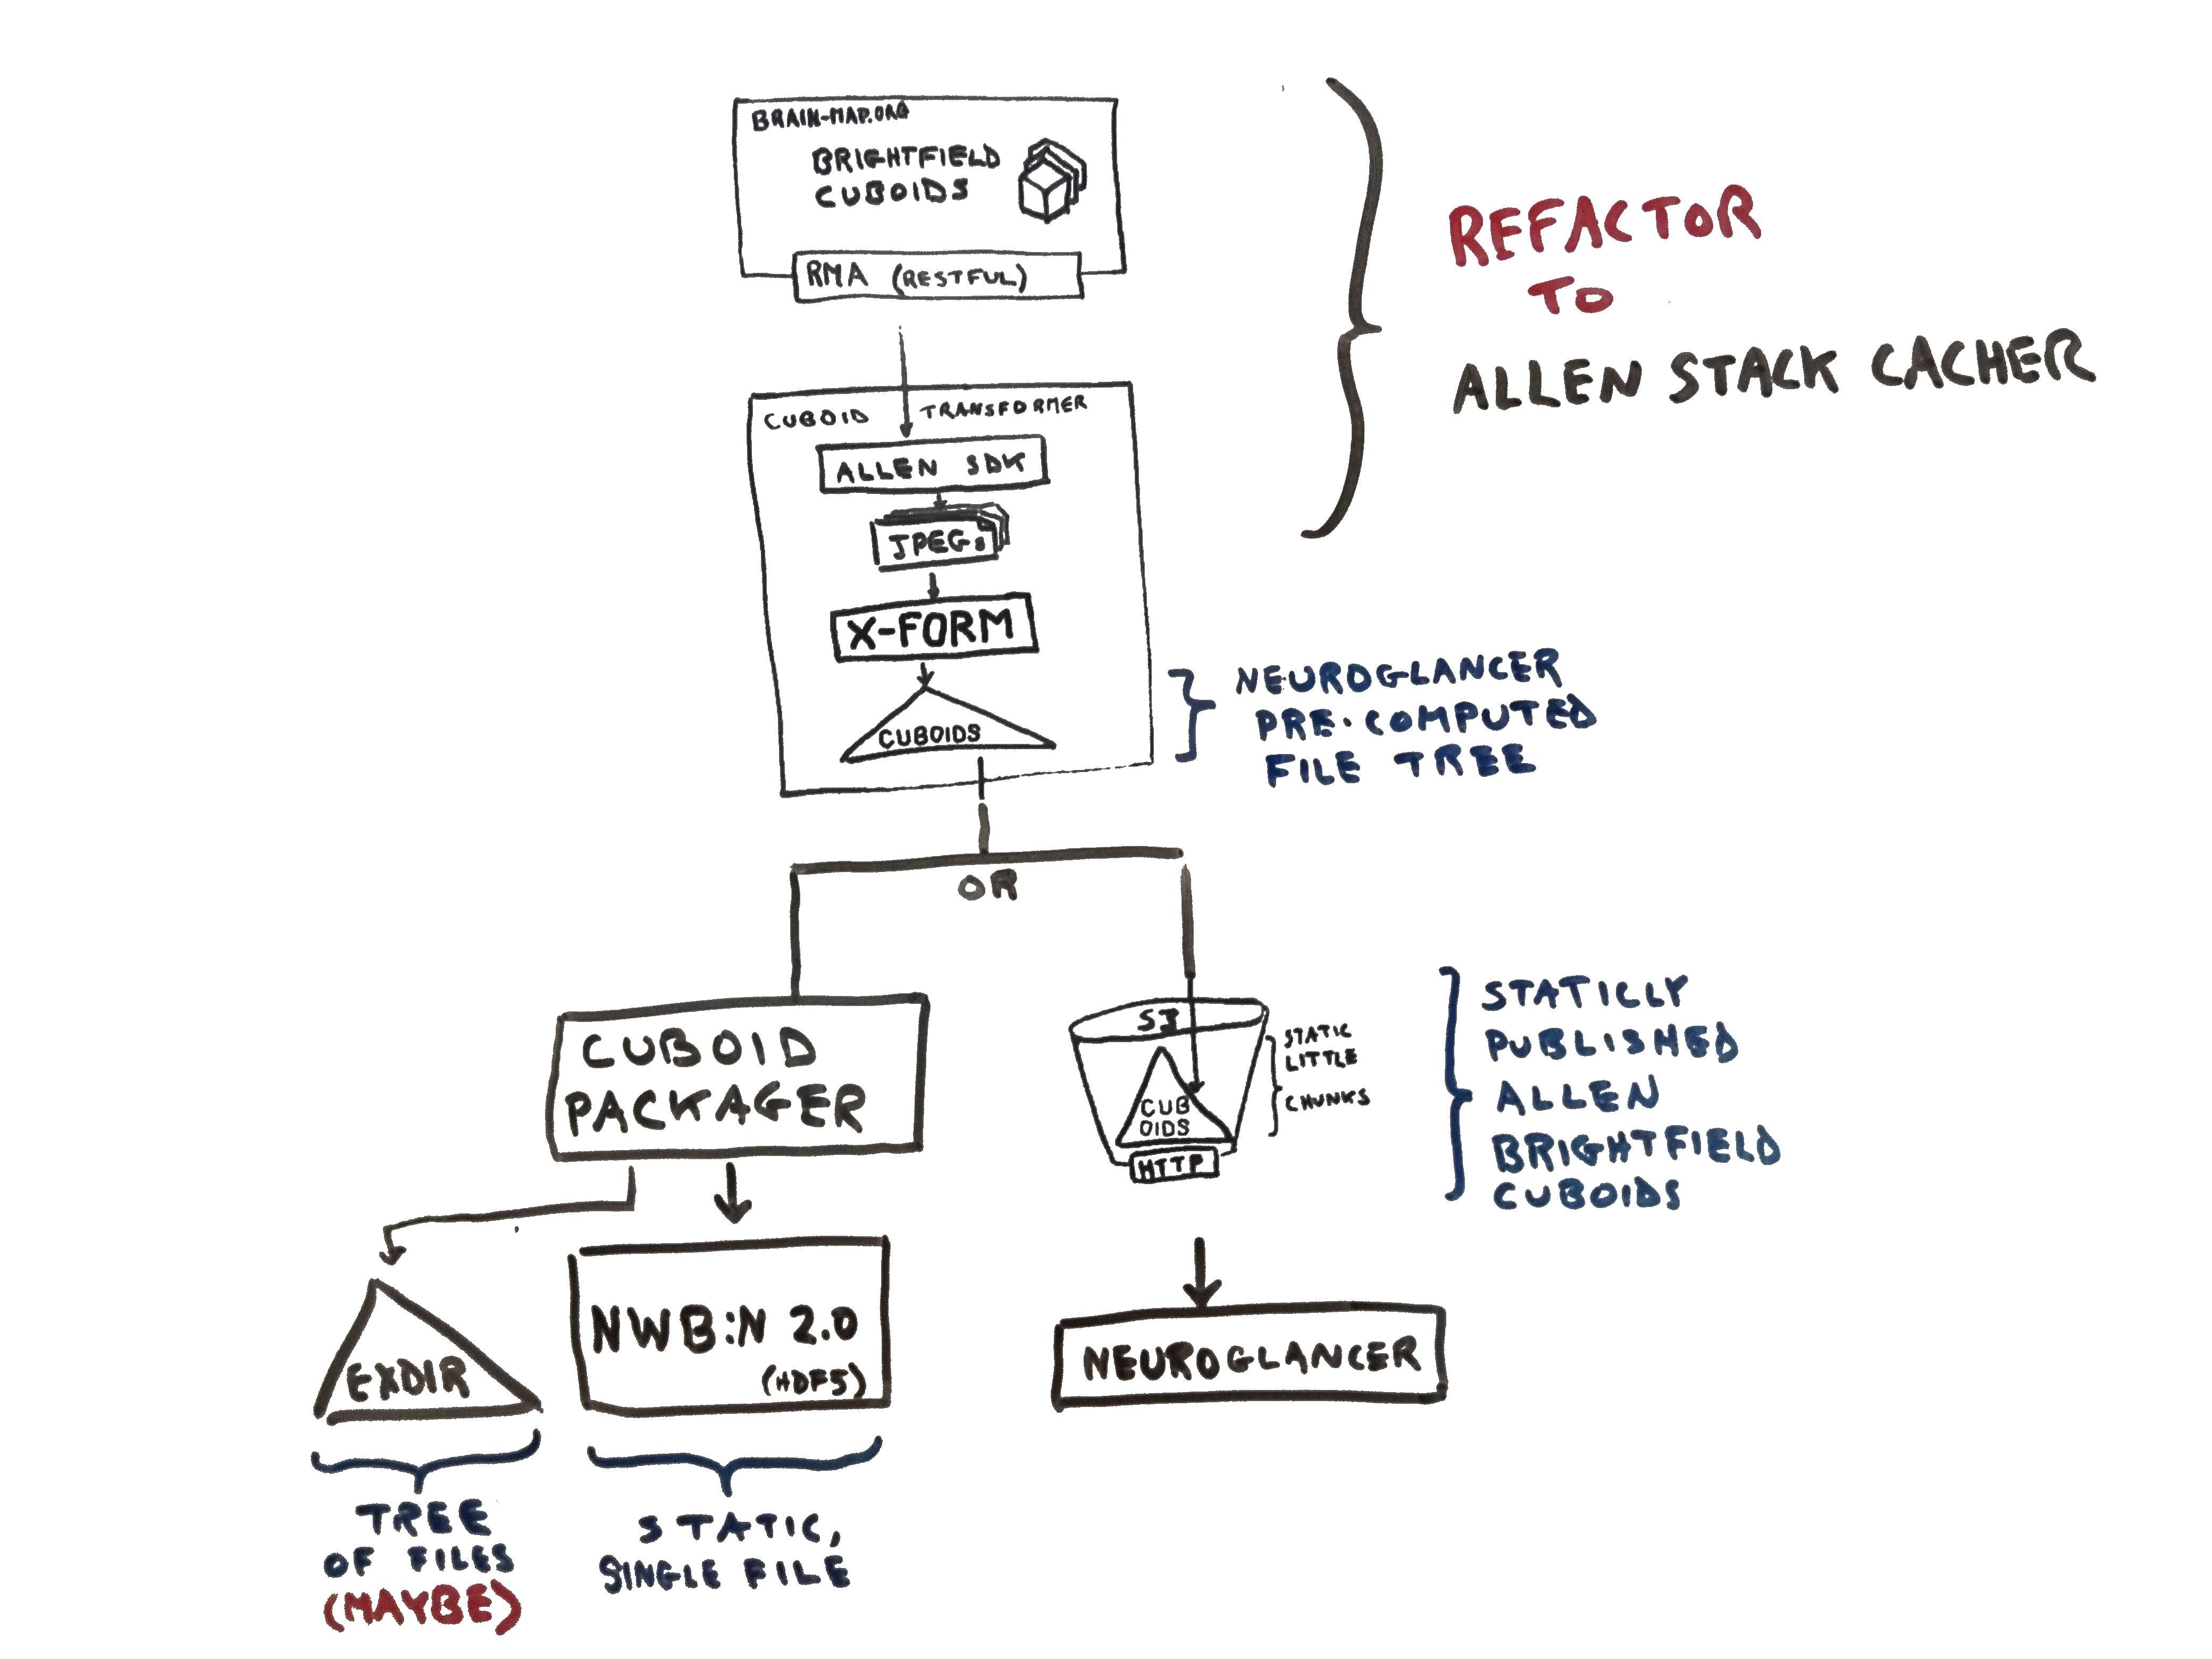 BRAIN-MAP.ORG
BRIGHTFIELD
CUBOIDS
RMA (RESTFUL)
REFACTOR
TO
ALLEN STACK CACHER
CUBOID TRANSFORMER
ALLEN SDK
JPEGs
X-FORM
CUBOIDS
NEUROGLANCER
PRE-COMPUTED
FILE TREE
OR
CUBOID
PACKAGER
S3
CUB
OIDS
HTTP
STATIC
LITTLE
CHUNKS
STATICLY
PUBLISHED
ALLEN
BRIGHTFIELD
CUBOIDS
EXDIR
NWB:N 2.0
(HDF5)
NEUROGLANCER
TREE
OF FILES
(MAYBE)
STATIC,
SINGLE FILE